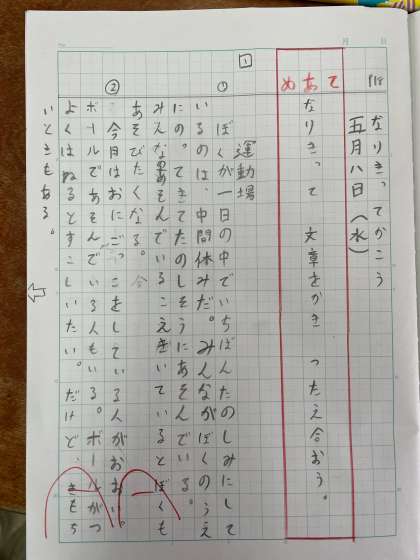 P18
なりきってかこう
五月八日(水)
めあて
なりきって 文章をかき つたえ合おう。
1
運動場
① ぼくが一日の中でいちばんたのしみにして
いるのは、中間休みだ。みんながぼくのうえ
にのってきてたのしそうにあそんでいる。
みんなのあそんでいるこえをきいているとぼくも
あそびたくなる。
② 今日はおにごっこをしている人がおおい。
ボールであそんでいる人もいる。ボールがつ
よくはねるとすこしいたい。だけど、きもち
いときもある。